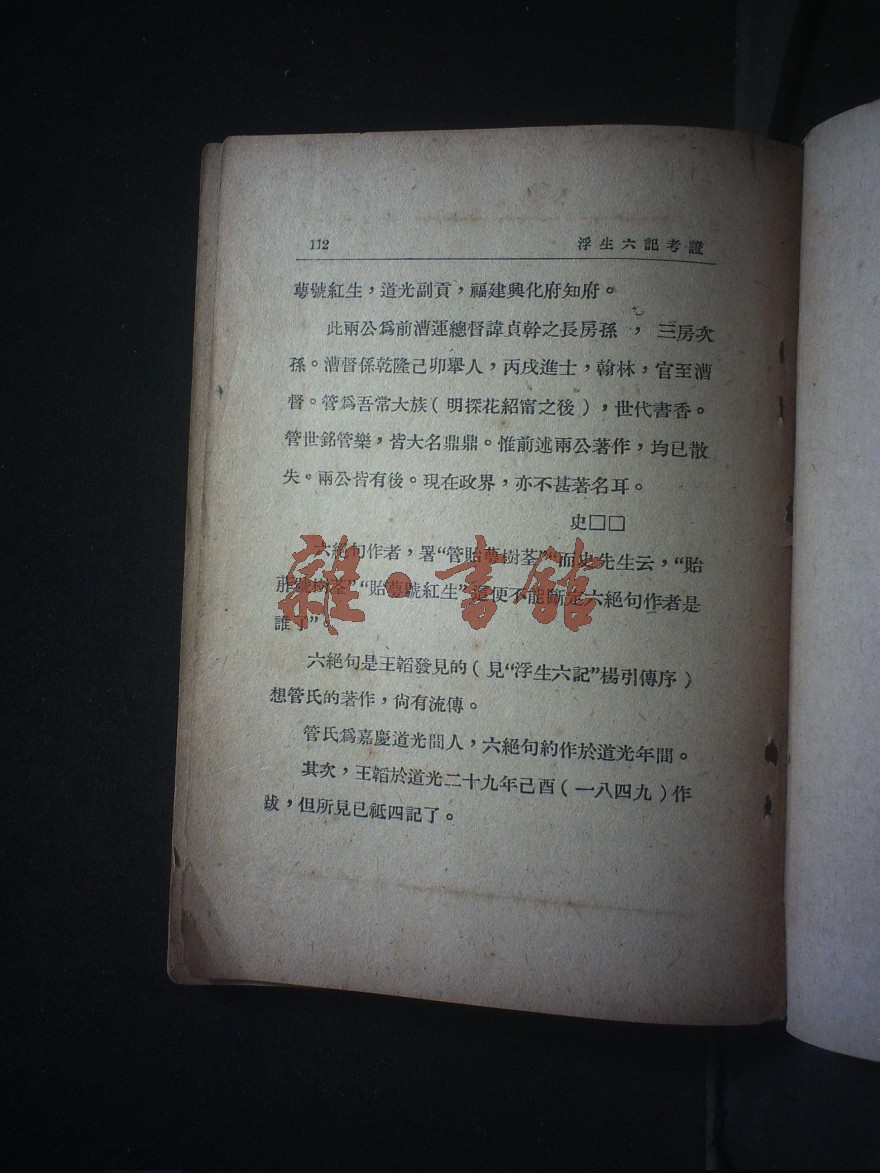 112 浮生六記考證
蕚號紅生，道光副貢，福建興化府知府。
此兩公爲前漕運總督諱貞幹之長房孫，三房次
孫。漕督係乾隆己卯舉人，丙戌進士，翰林，官至漕
督。管爲吾常大族(明探花紹甯之後)，世代書香。
管世銘管樂，皆大名鼎鼎。惟前述兩公著作，均已散
失。兩公皆有後。現在政界，亦不甚著名耳。
史□□
六絕句作者，署“管貽蕚樹荃”而史先生云，“貽
號樹荃”“貽蕚號紅生”這便不能斷定六絕句作者是
誰了”。
六絕句是王韜發見的(見“浮生六記”楊引傳序)
想管氏的著作，尙有流傳。
管氏爲嘉慶道光間人，六絕句約作於道光年間。
其次，王韜於道光二十九年己酉(一八四九)作
跋，但所見已祗四記了。
雜·書館